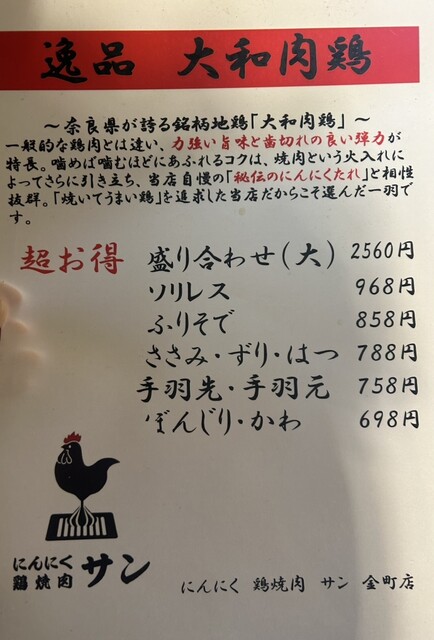 逸品 大和肉鶏
～奈良県が誇る銘柄地鶏「大和肉鶏」～
一般的な鶏肉とは違い、力強い旨味と歯切れの良い弾力が
特長。噛めば噛むほどにあふれるコクは、焼肉という火入れに
よってさらに引き立ち、当店自慢の「秘伝のにんにくたれ」と相性
抜群。「焼いてうまい鶏」を追求した当店だからこそ選んだ一羽で
す。
超お得 盛り合わせ(大) 2560円
ソリレス 968円
ふりそで 858円
ささみ・ずり・はつ 788円
手羽先・手羽元 758円
ぼんじり・かわ 698円
にんにく
鶏焼肉 サン
にんにく 鶏焼肉 サン 金町店